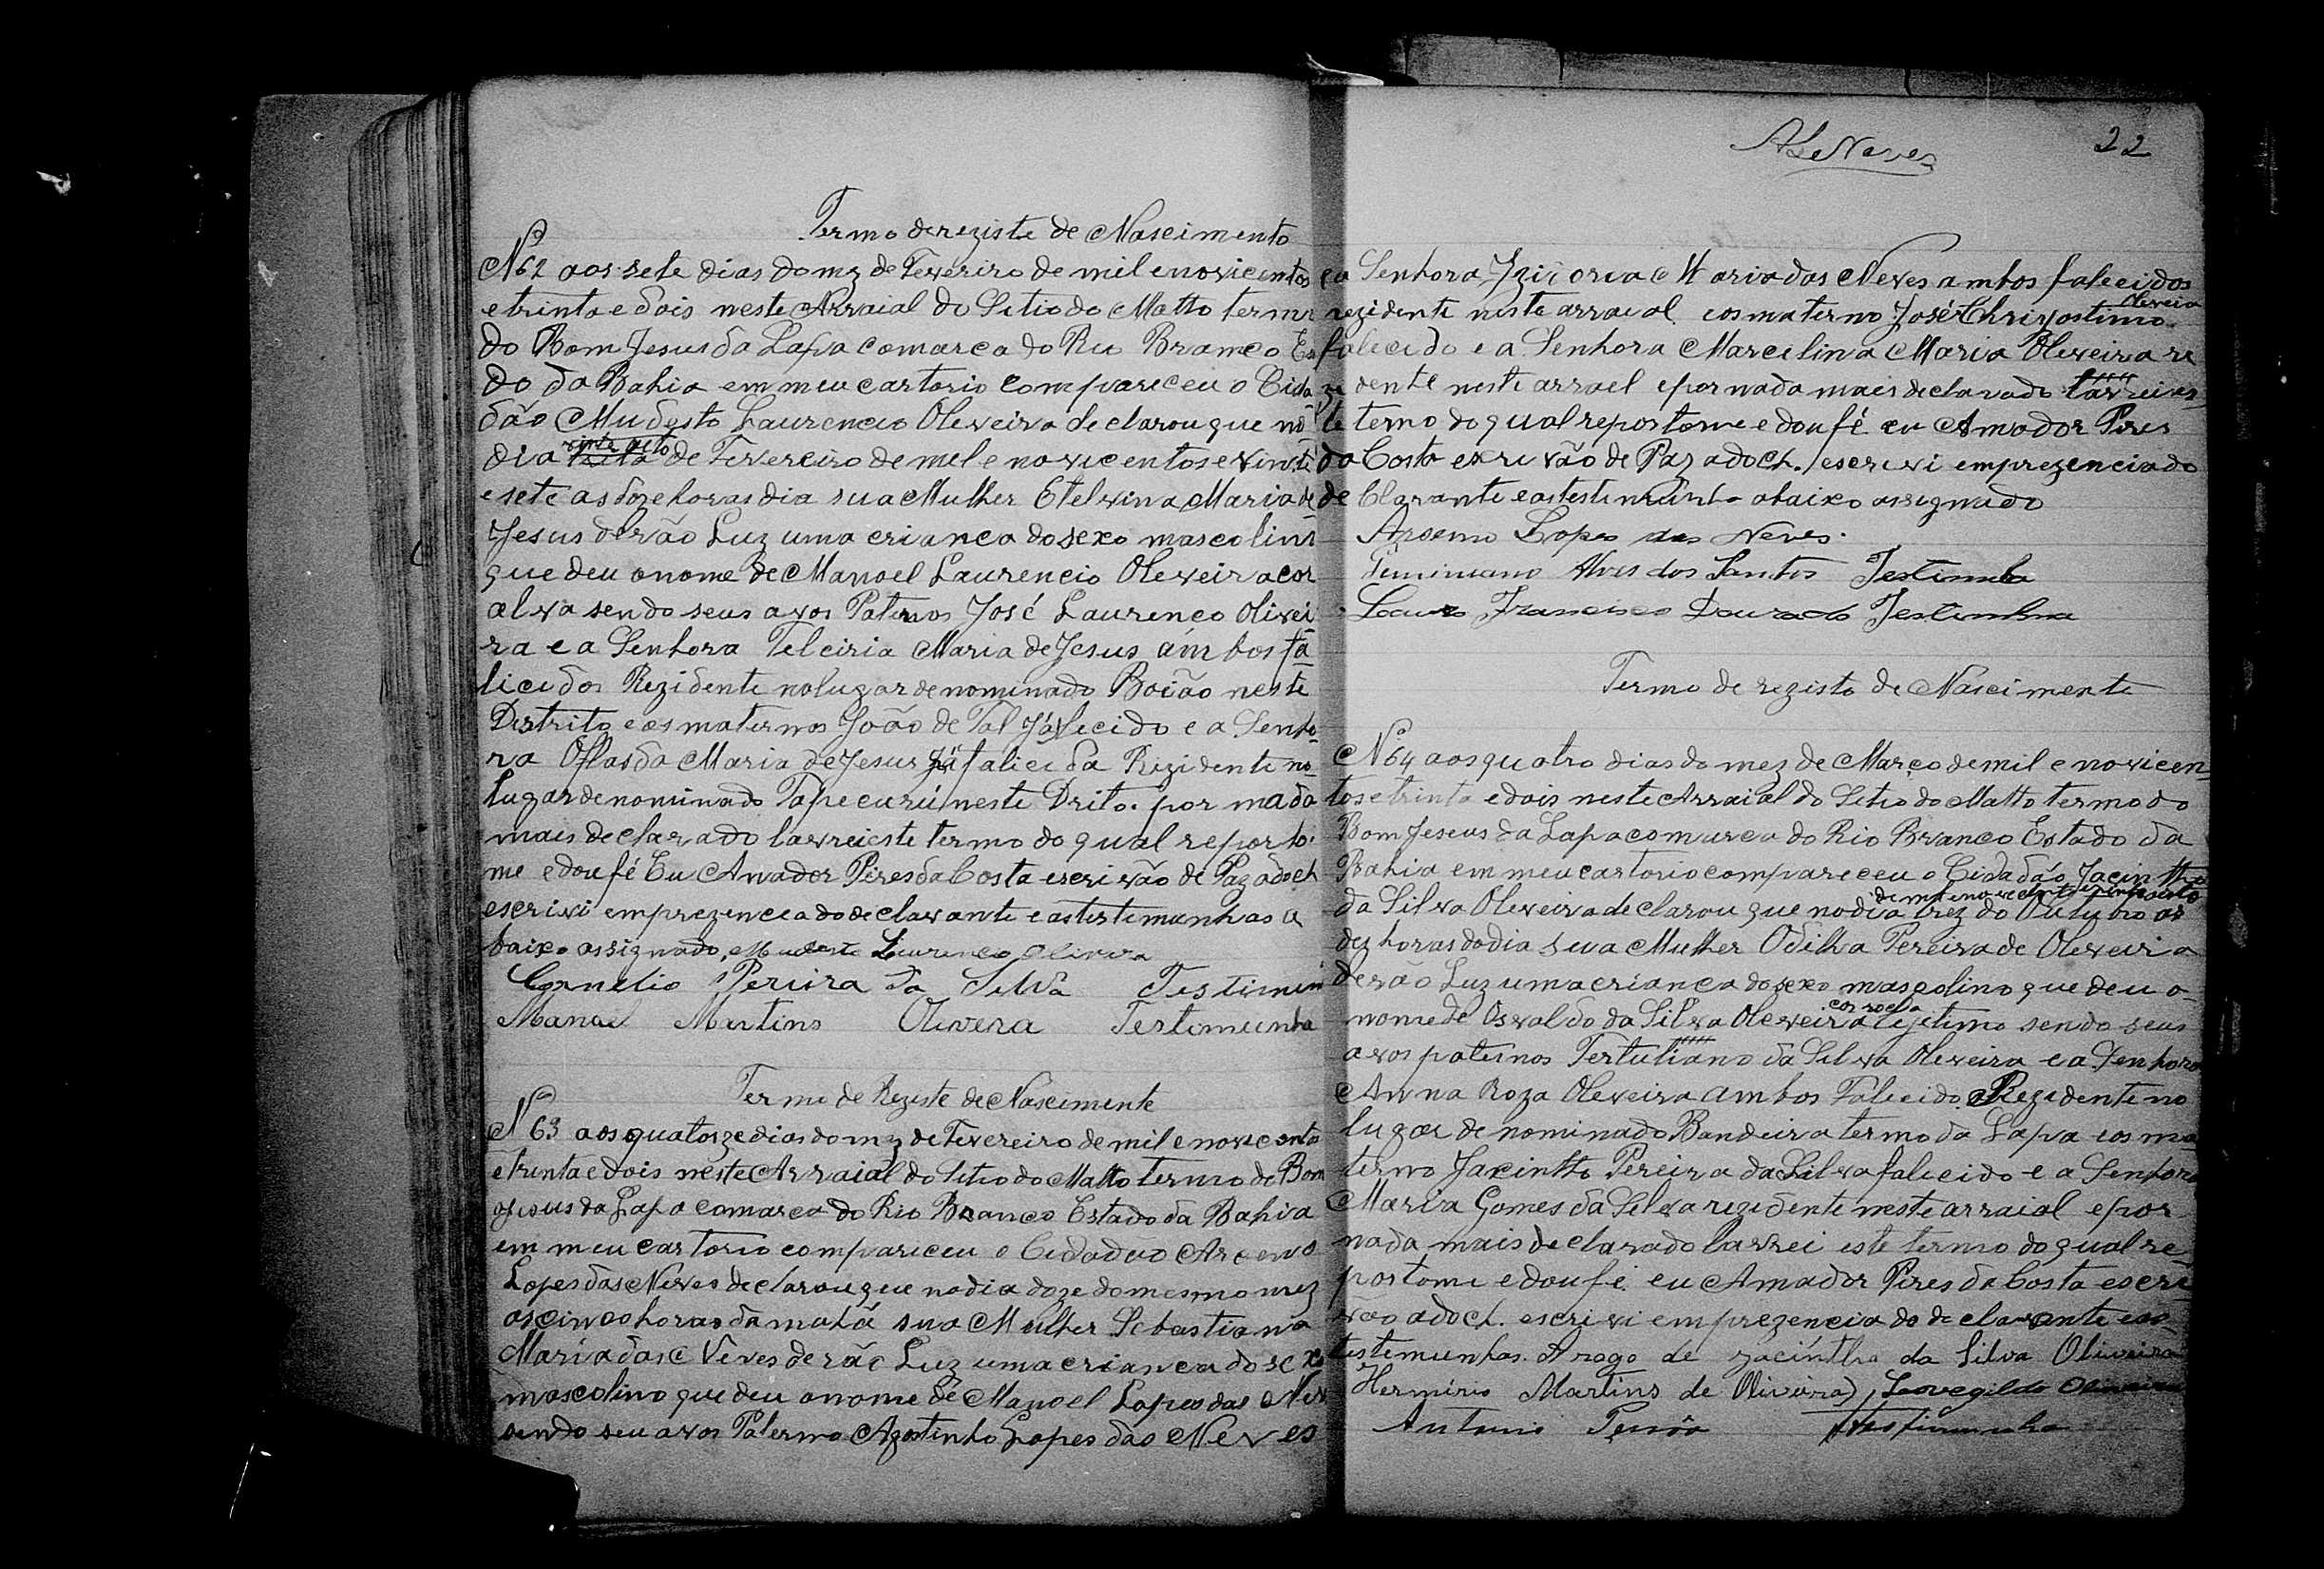 Termo de registe de Nascimento
Nº 62 aos sete dias do mz de Fevereiro de mil e novicentos
e trinta e dois neste Arraial do Sitio do Matto termo
do Bom Jesus da Lapa comarca do Rio Branco Esta
do da Bahia em meu cartorio compareceu o Cida
dão Mudesto Laurencio Oleveira declarou que no
vinte oito
dia de Fevereiro de mel e novicentos e vinte
e sete as doze horas dia sua Mulher Etelvina Maria de
Jesus derão Luz uma crianca do sexo mascolino
que deu o nome de Manoel Laurencio Oleveira cor
alva sendo seus avos Paternos José Laurenco Olivei
ra e a Senhora Telciria Maria de Jesus ambos fa
licidos Rezidente no lugar denominado Boião neste
Destrito e os maternos João de Tal já falecido e a Senho
ra Maria de Jesus já falicida Rezidente no
lugar denominado Tapecurú neste Drito. por mada
mais declarado lavrei este termo do qual reporto
me e doufé Eu Amador Pires da Costa escrivão de Paz adoch
escrivi em prezencia do declarante e as testemunhas a
baixo assignado, Mudesto Laurenco Olivira
Cornelio Pereira da Silva Testimun
Manoel Martins Olivera Testimunha
Termo de Registe de Nascimente
Nº 63 aos quatorze dias do mz de Fevereiro de mil e novicento
e trinta e dois neste Arraial do Sitio do Matto termo do Bom
Jesus da Lapa comarca do Rio Branco Estado da Bahia
em meu cartorio compariceu o Cidadao Arcenio
Lopes das Neves declarou que no dia doze do mesmo mez
as cinco horas da mahã sua Mulher Sebastiana
Maria das Neves derão Luz uma crianca do sexo
mascolino que deu o nome de Manoel Lopes das Nev
sendo seu avos Paterno Agostinho Lopes das Neves
ALeNeves
22
ea Senhora Maria das Neves ambos falecidos
Oleveira
rezidente neste arraial eos materno José Chrizostimo
falecido e a Senhora Marcelina Maria Oleveira re
zi dente neste arrael e por nada mais declarado lavrei es
te temo do qual reportome e doufé eu Amador Pires
da Costa escrivão de Paz adoch. escrivi em prezencia do
de Clarante e as testimunha abaixo assegnado
Arsemo Lopes das Neves.
Alves dos Santos Testimuha
Lauro Francisco Dourado Testimuha
Termo de registo de Nascimente
Nº 64 aos quatro dias do mez de Março de mil e novicen
tos e trinta e dois neste Arraial do Setio do Matto termo do
Bom Jeseus da Lapa comarca do Rio Branco Estado da
Bahia em meu cartorio compareceu o Cidadão Jacintho
de mil e novecento e vinte e oito
da Silva Oleveira declarou que no dia trez do Outubro as
dez horas do dia sua Mulher Odilha Pereira de Oleveira
derão Luz uma crianca do sexo mascolino que deu o
cor roch
nome de Osvaldo da Silva Oleveira lejetimo sendo seus
avos paternos Tertuliano da Silva Oleveira e a Senhora
Anna Roza Oleveira ambos Falicido Rezedente no
lugar de nominado Bandeira termo da Lapa eos ma
terno Jacintho Pereira da Silva falicido e a Senhora
Maria Gomes da Selva rezidente neste arraial e por
nada mais declarado lavrei este termo do qual re
portome e doufé. eu Amador Pires da Costa escri
vão adoch. escrivi em prezencia do declarante eas
testemunhas. A rogo de Jacintho da Silva Oliveira
Hermirio Martins de Oliveira, Leovegildo Oliveira
Antonio testimunha